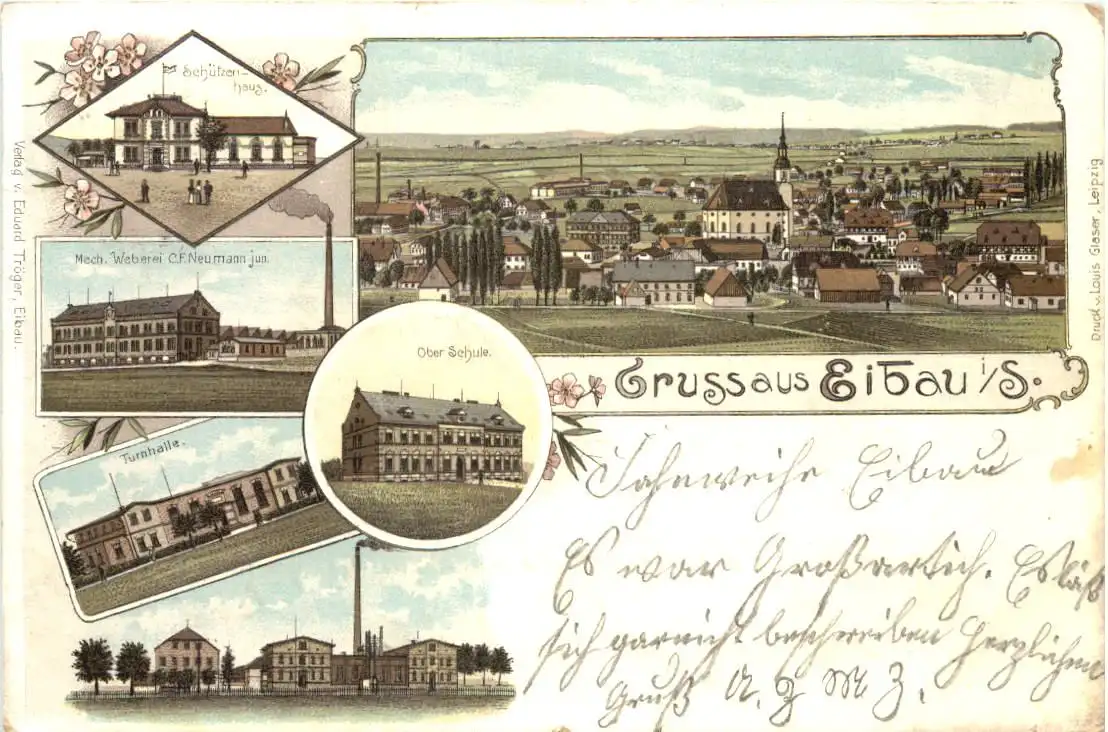 Schützen-
haus.
Mech. Weberei C.F. Neumann jun.
Ober Schule.
Turnhalle.
Gruss aus Eibau i/S.
Verlag v. Eduard Tröger, Eibau.
Druck v. Louis Glaser, Leipzig
Fahnweihe Eibau
Es war Großartich. Es läßt
sich garnicht beschreiben Herzlichen
Gruß A. Z M Z.